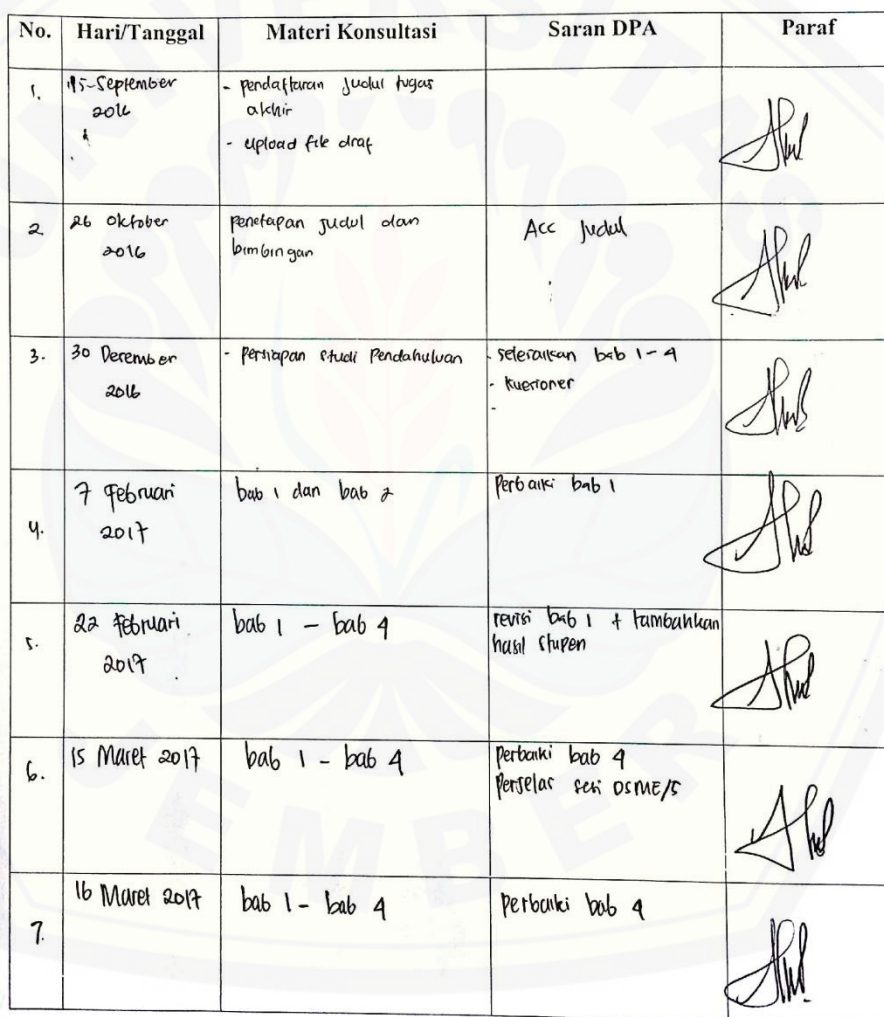 No. Hari/Tanggal Materi Konsultasi Saran DPA Paraf
1. 15-September - pendaftaran Judul tugas
2016 akhir
- upload file draf
2. 26 Oktober penetapan judul dan Acc Judul
2016 bimbingan
3. 30 Desember - persiapan studi Pendahuluan - selesaikan bab 1-4
2016 - kuesioner
-
4. 7 Februari bab 1 dan bab 2 Perbaiki bab 1
2017
5. 22 Februari bab 1 - bab 4 revisi bab 1 + tambahkan
2017 hasil stupen
6. 15 Maret 2017 bab 1 - bab 4 perbaiki bab 4
Perjelas sesi DSME/S
7. 16 Maret 2017 bab 1 - bab 4 perbaiki bab 4
UNIVERSITAS
JEMBER